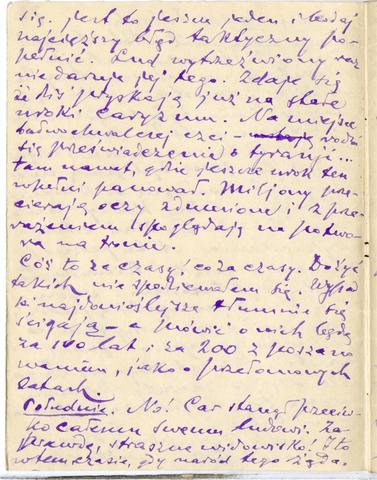 się. Jest to jeszcze jeden i bodaj
największy błąd taktyczny po-
pełnić. Lud wytrzeźwiony raz
nie daruje jej tego. Zdaje się
że dziś pryskają już na stałe
uroki caryzmu. Na miejsce
bałwochwalczej czci - rodzi
się przeświadczenie o tyranji...
tam nawet, gdzie jeszcze urok ten
w pełni panował. Miljony prze-
cierają oczy zdumione i z prze-
rażeniem spoglądają na potwo-
ra na tronie.
Cóż to za czasy, co za czasy. Dożyć
takich nie spodziewałem się. Wypad
ki najdonioślejsze tłumnie się
ścigają - a mówić o nich będą
za 100 lat i za 200 z poszano
waniem, jako o przełomowych
latach.
Południe. No! Car stanął przeciw-
ko całemu swemu ludowi. Za-
prawdę, straszne widowisko! I to
w tem czasie, gdy naród tego żąda,